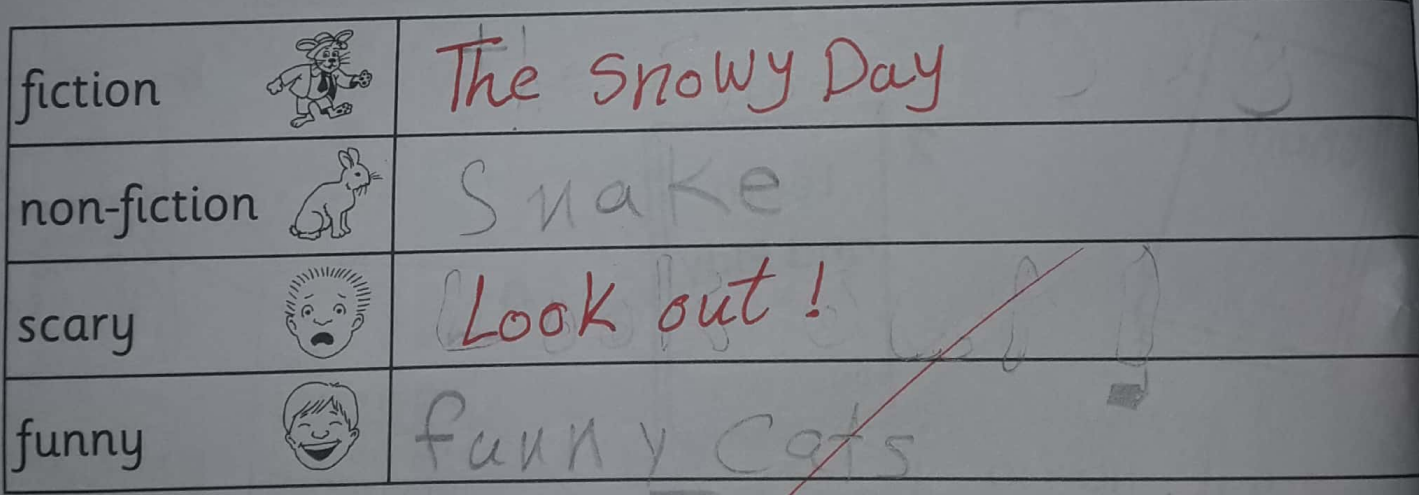 fiction The Snowy Day
non-fiction Snake
scary Look out!
funny funny cats